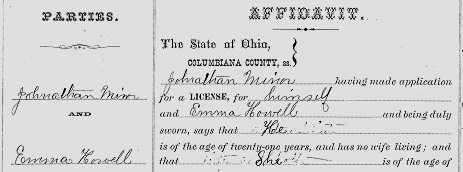 PARTIES.
Johnathan Minor
AND
Emma Howell
AFFIDAVIT.
The State of Ohio,
COLUMBIANA COUNTY, ss.
Johnathan Minor having made application
for a LICENSE, for himself
and Emma Howell and being duly
sworn, says that He
is of the age of twenty-one years, and has no wife living; and
that She is of the age of